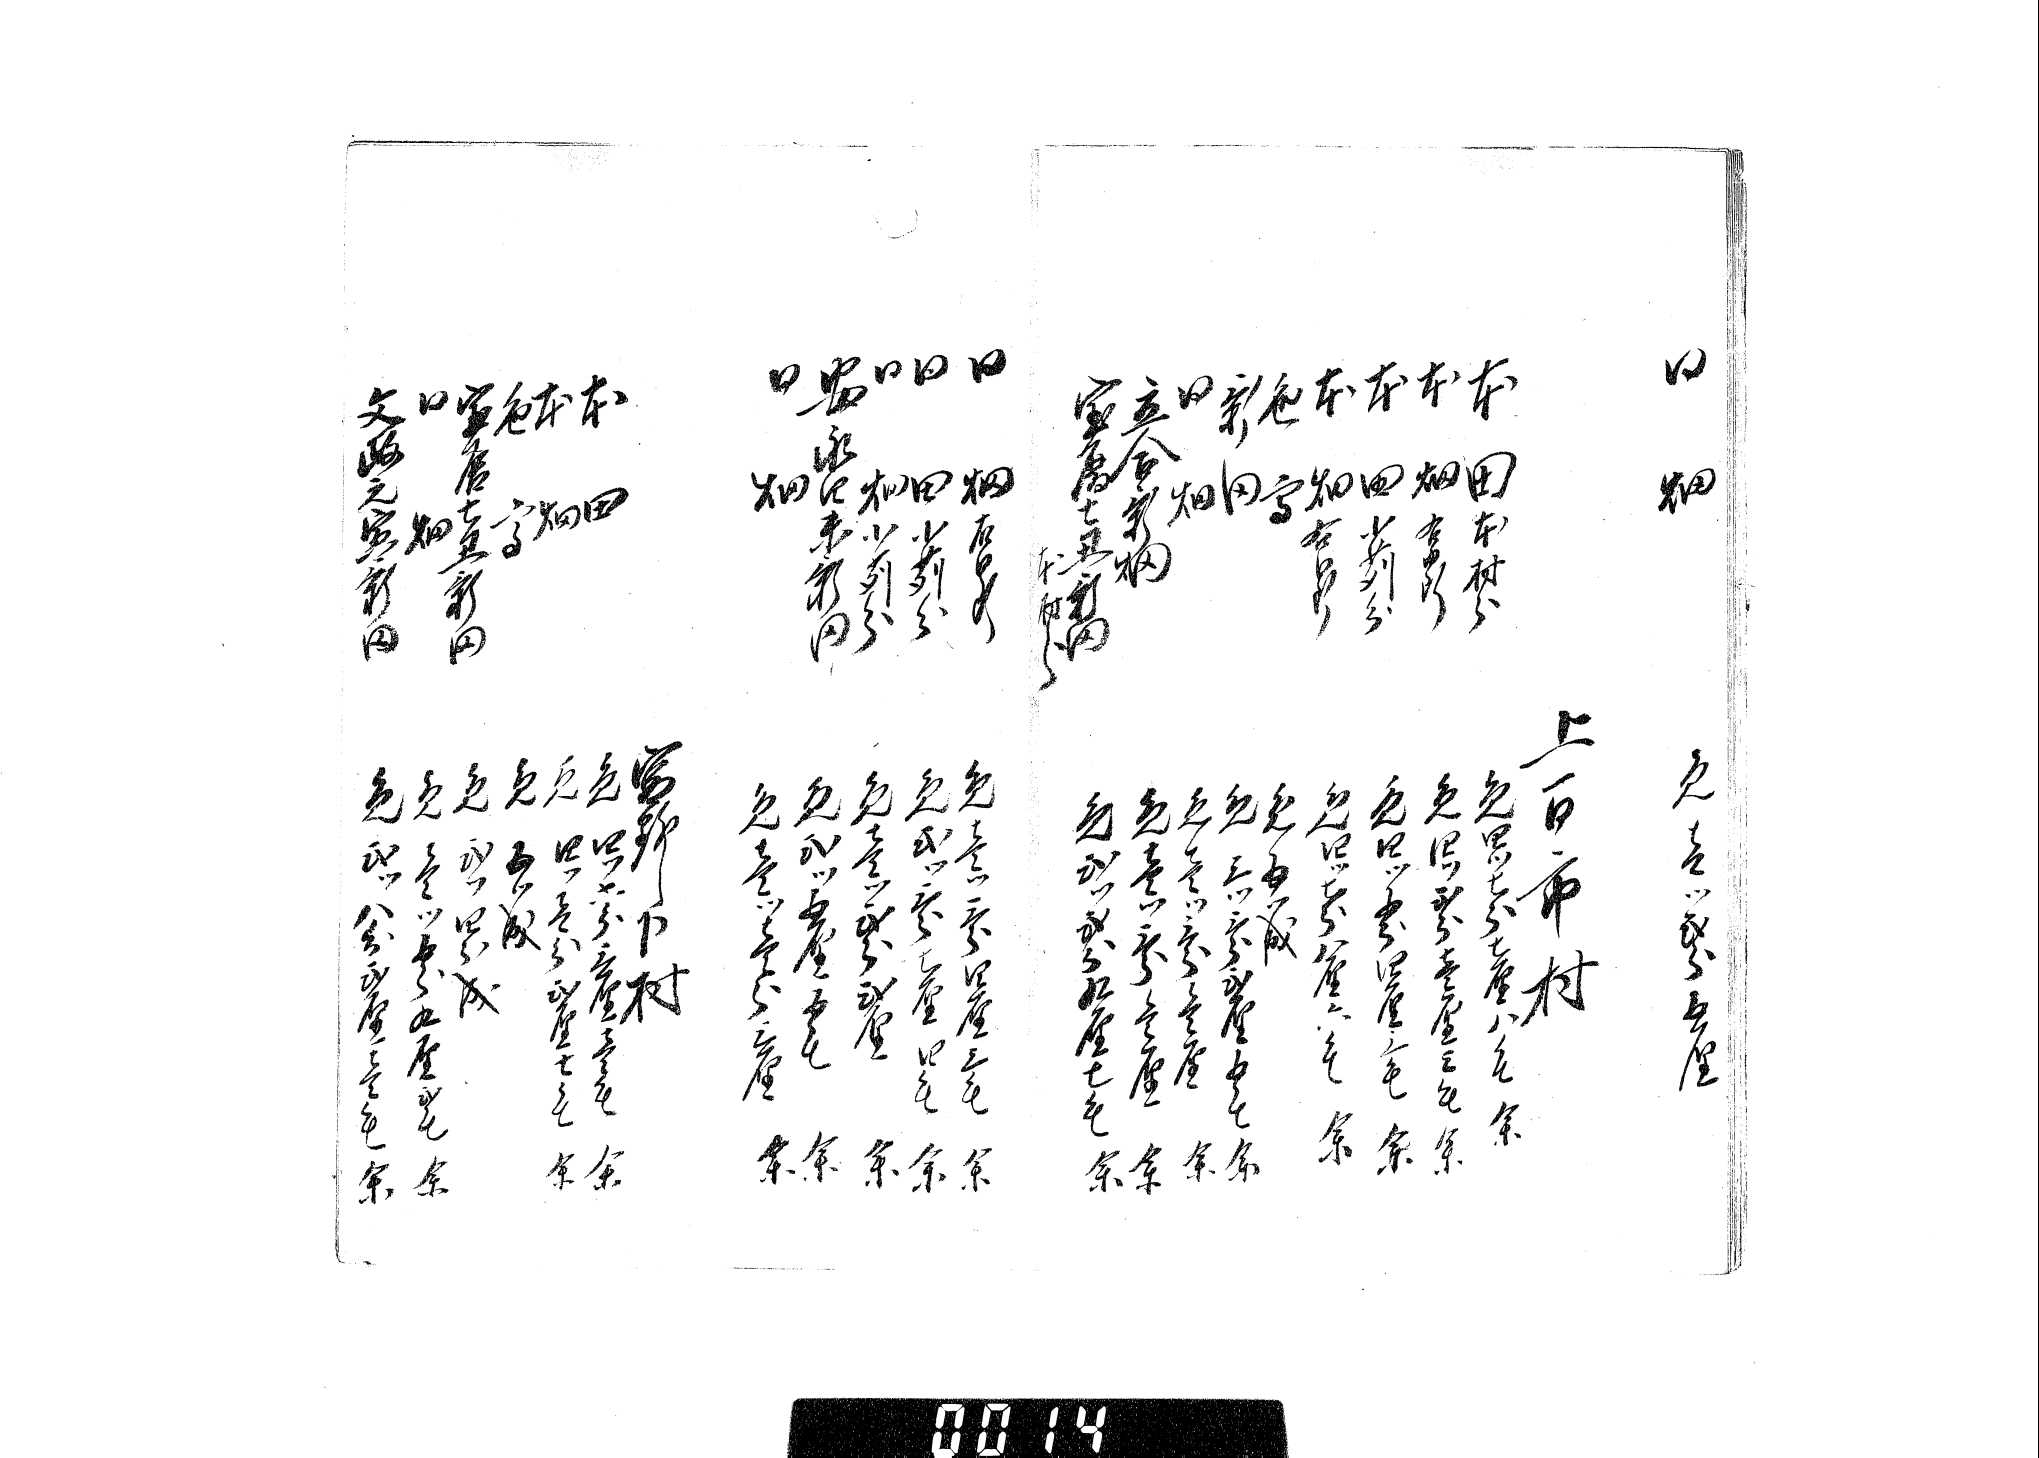 同　畑　免壱ツ弐分五厘
上百市村
本　田　本村分　免四ツ七分七厘八毛　余
本　畑　右同断　免四ツ弐分壱厘三毛　余
本　田　小苅分　免四ツ五分四厘三毛　余
本　畑　右同断　免四ツ七分八厘六毛　余
色　高　免五ツ成
新　田　免三ツ三分弐厘五毛　余
同　畑　免壱ツ三分壱厘　余
立合新畑　免壱ツ三分壱厘　余
宝暦七丑新田　本村分　免弐ツ弐分九厘七毛　余
同　畑　右同断　免壱ツ三分四厘三毛　余
同　田　小苅分　免弐ツ三分七厘四毛　余
同　畑　小苅分　免壱ツ弐分弐厘　余
安永四未新田　免弐ツ五厘五毛　余
同　畑　免壱ツ壱分三厘　余
宮野下村
本　田　免四ツ六分三厘壱毛　余
本　畑　免四ツ壱分弐厘七毛　余
色　高　免五ツ成
宝暦七丑新田　免弐ツ四分成
同　畑　免壱ツ五分九厘弐毛　余
文政元寅新田　免弐ツ八分弐厘壱毛　余
0014